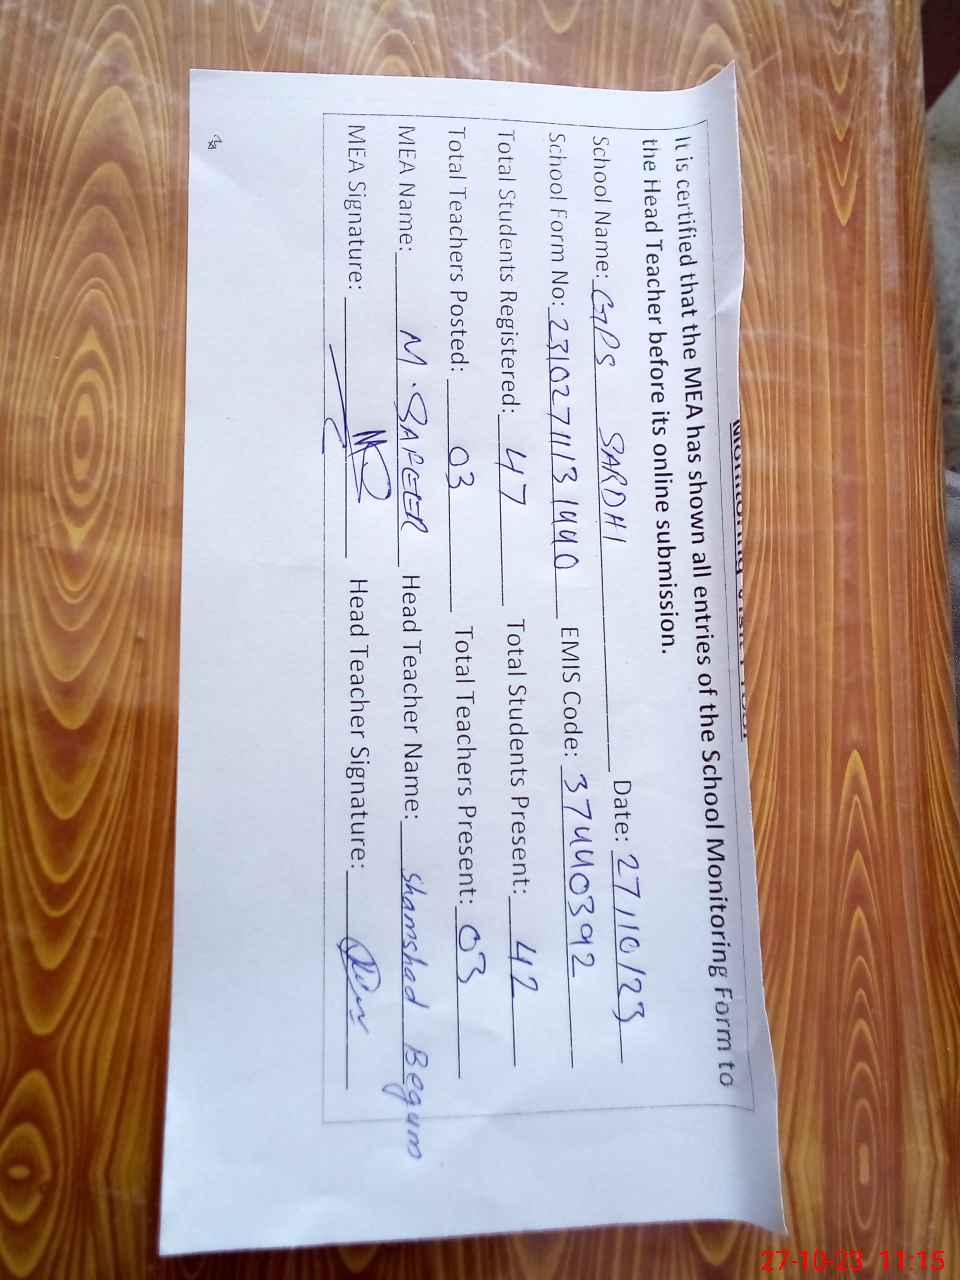 It is certified that the MEA has shown all entries of the School Monitoring Form to
the Head Teacher before its online submission.
School Name: GPS SARDHI Date: 27/10/23
School Form No: 23102711131440 EMIS Code: 37440392
Total Students Registered: 47 Total Students Present: 42
Total Teachers Posted: 03 Total Teachers Present: 03
MEA Name: M. SAFEER Head Teacher Name: Shamshad Begum
MEA Signature: Head Teacher Signature:
27-10-23 11:15